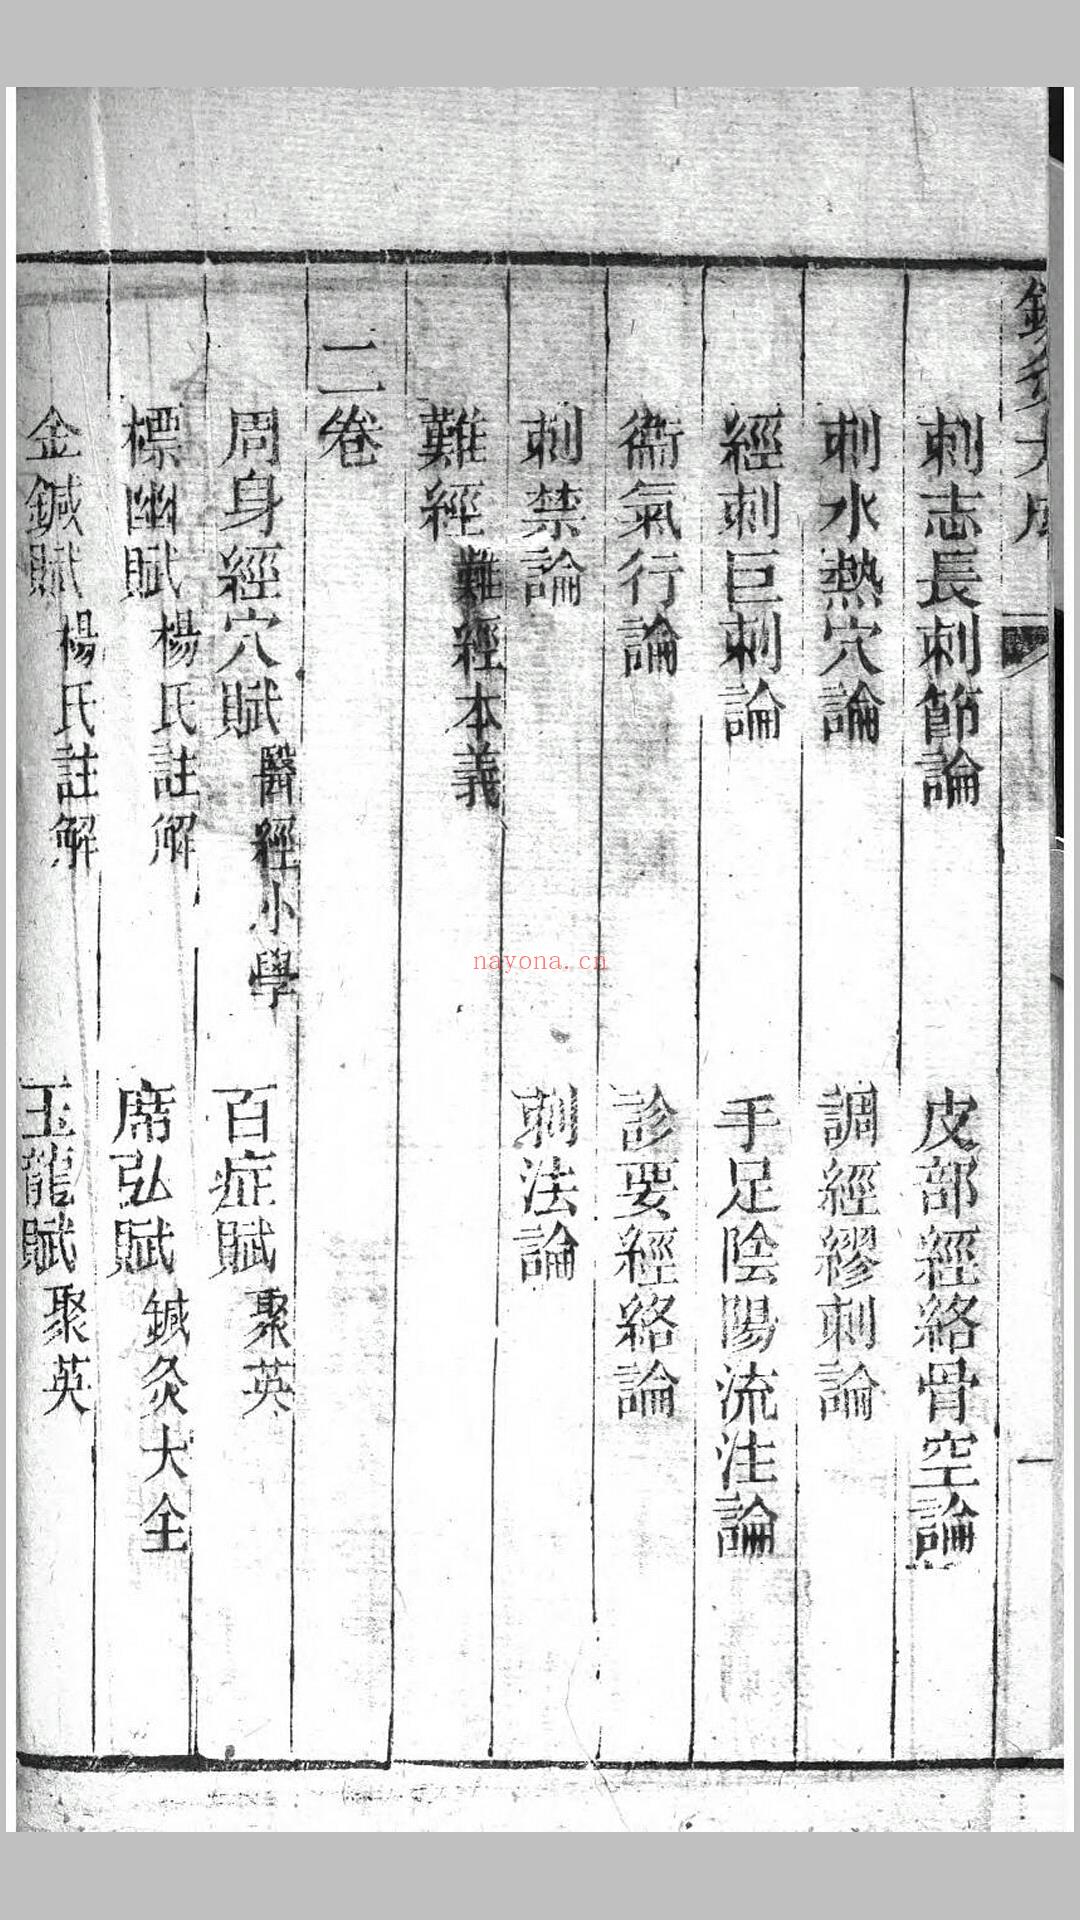 鍼灸大成
一
刺志長刺節論　皮部經絡骨空論
刺水熱穴論　調經繆刺論
經刺巨刺論　手足陰陽流注論
衞氣行論　診要經絡論
刺禁論　刺法論
難經 難經本義
二卷
周身經穴賦 醫經小學　百症賦 聚英
標幽賦 楊氏註解　席弘賦 鍼灸大全
金鍼賦 楊氏註解　玉龍賦 聚英
nayona.cn